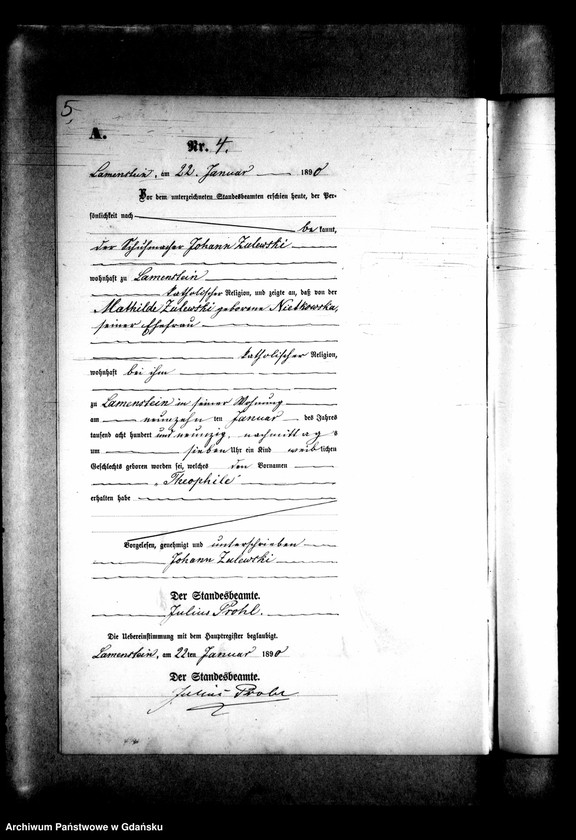 5
A.
Nr. 4.
Lamenstein, am 22. Januar 1890
Vor dem unterzeichneten Standesbeamten erschien heute, der Per-
sönlichkeit nach
be kannt,
der Schuhmacher Johann Zulewski
wohnhaft zu Lamenstein
katholischer Religion, und zeigte an, daß von der
Mathilde Zulewski geborene Nietkowska,
seiner Ehefrau
katholischer Religion,
wohnhaft bei ihm
zu Lamenstein in seiner Wohnung
am neunzehn ten Januar des Jahres
tausend acht hundert und neunzig, nachmittags
um sieben Uhr ein Kind weib lichen
Geschlechts geboren worden sei, welches den Vornamen
„Theophile“
erhalten habe
Vorgelesen, genehmigt und unterschrieben
Johann Zulewski
Der Standesbeamte.
Julius Prohl.
Die Uebereinstimmung mit dem Hauptregister beglaubigt.
Lamenstein, am 22ten Januar 1890
Der Standesbeamte.
Julius Prohl
Archiwum Państwowe w Gdańsku